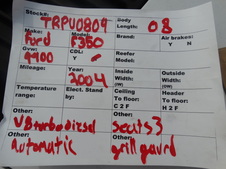 Stock#: TRPV0809 Body Length: 08
Make: Ford Model: F350 Brand: Air brakes: Y N
Gvw: 9900 CDL: Y Reefer Model:
Mileage: Year: 2004 Inside Width: Outside Width:
Temperature range: Elect. Stand by: Ceiling To floor: C 2 F Header To floor: H 2 F
Other: V8 turbo diesel Other: Seats 3
Other: automatic Other: grill gaurd